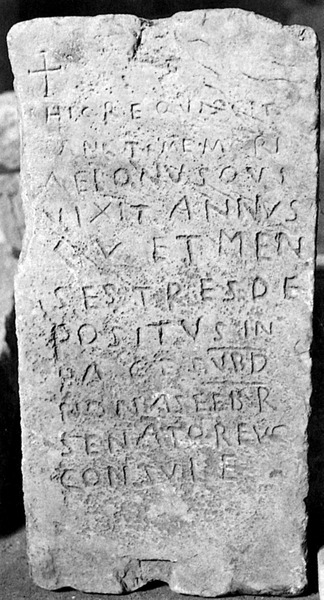 +
HIC REQVIISCIT
SANCTE MEMORI
QVI
VIXIT ANNVS
ET MEN
SES TRES DE
POSITVS IN
PACE SVB D
NONAS FEBR
SENATORE VC
CONSVLE